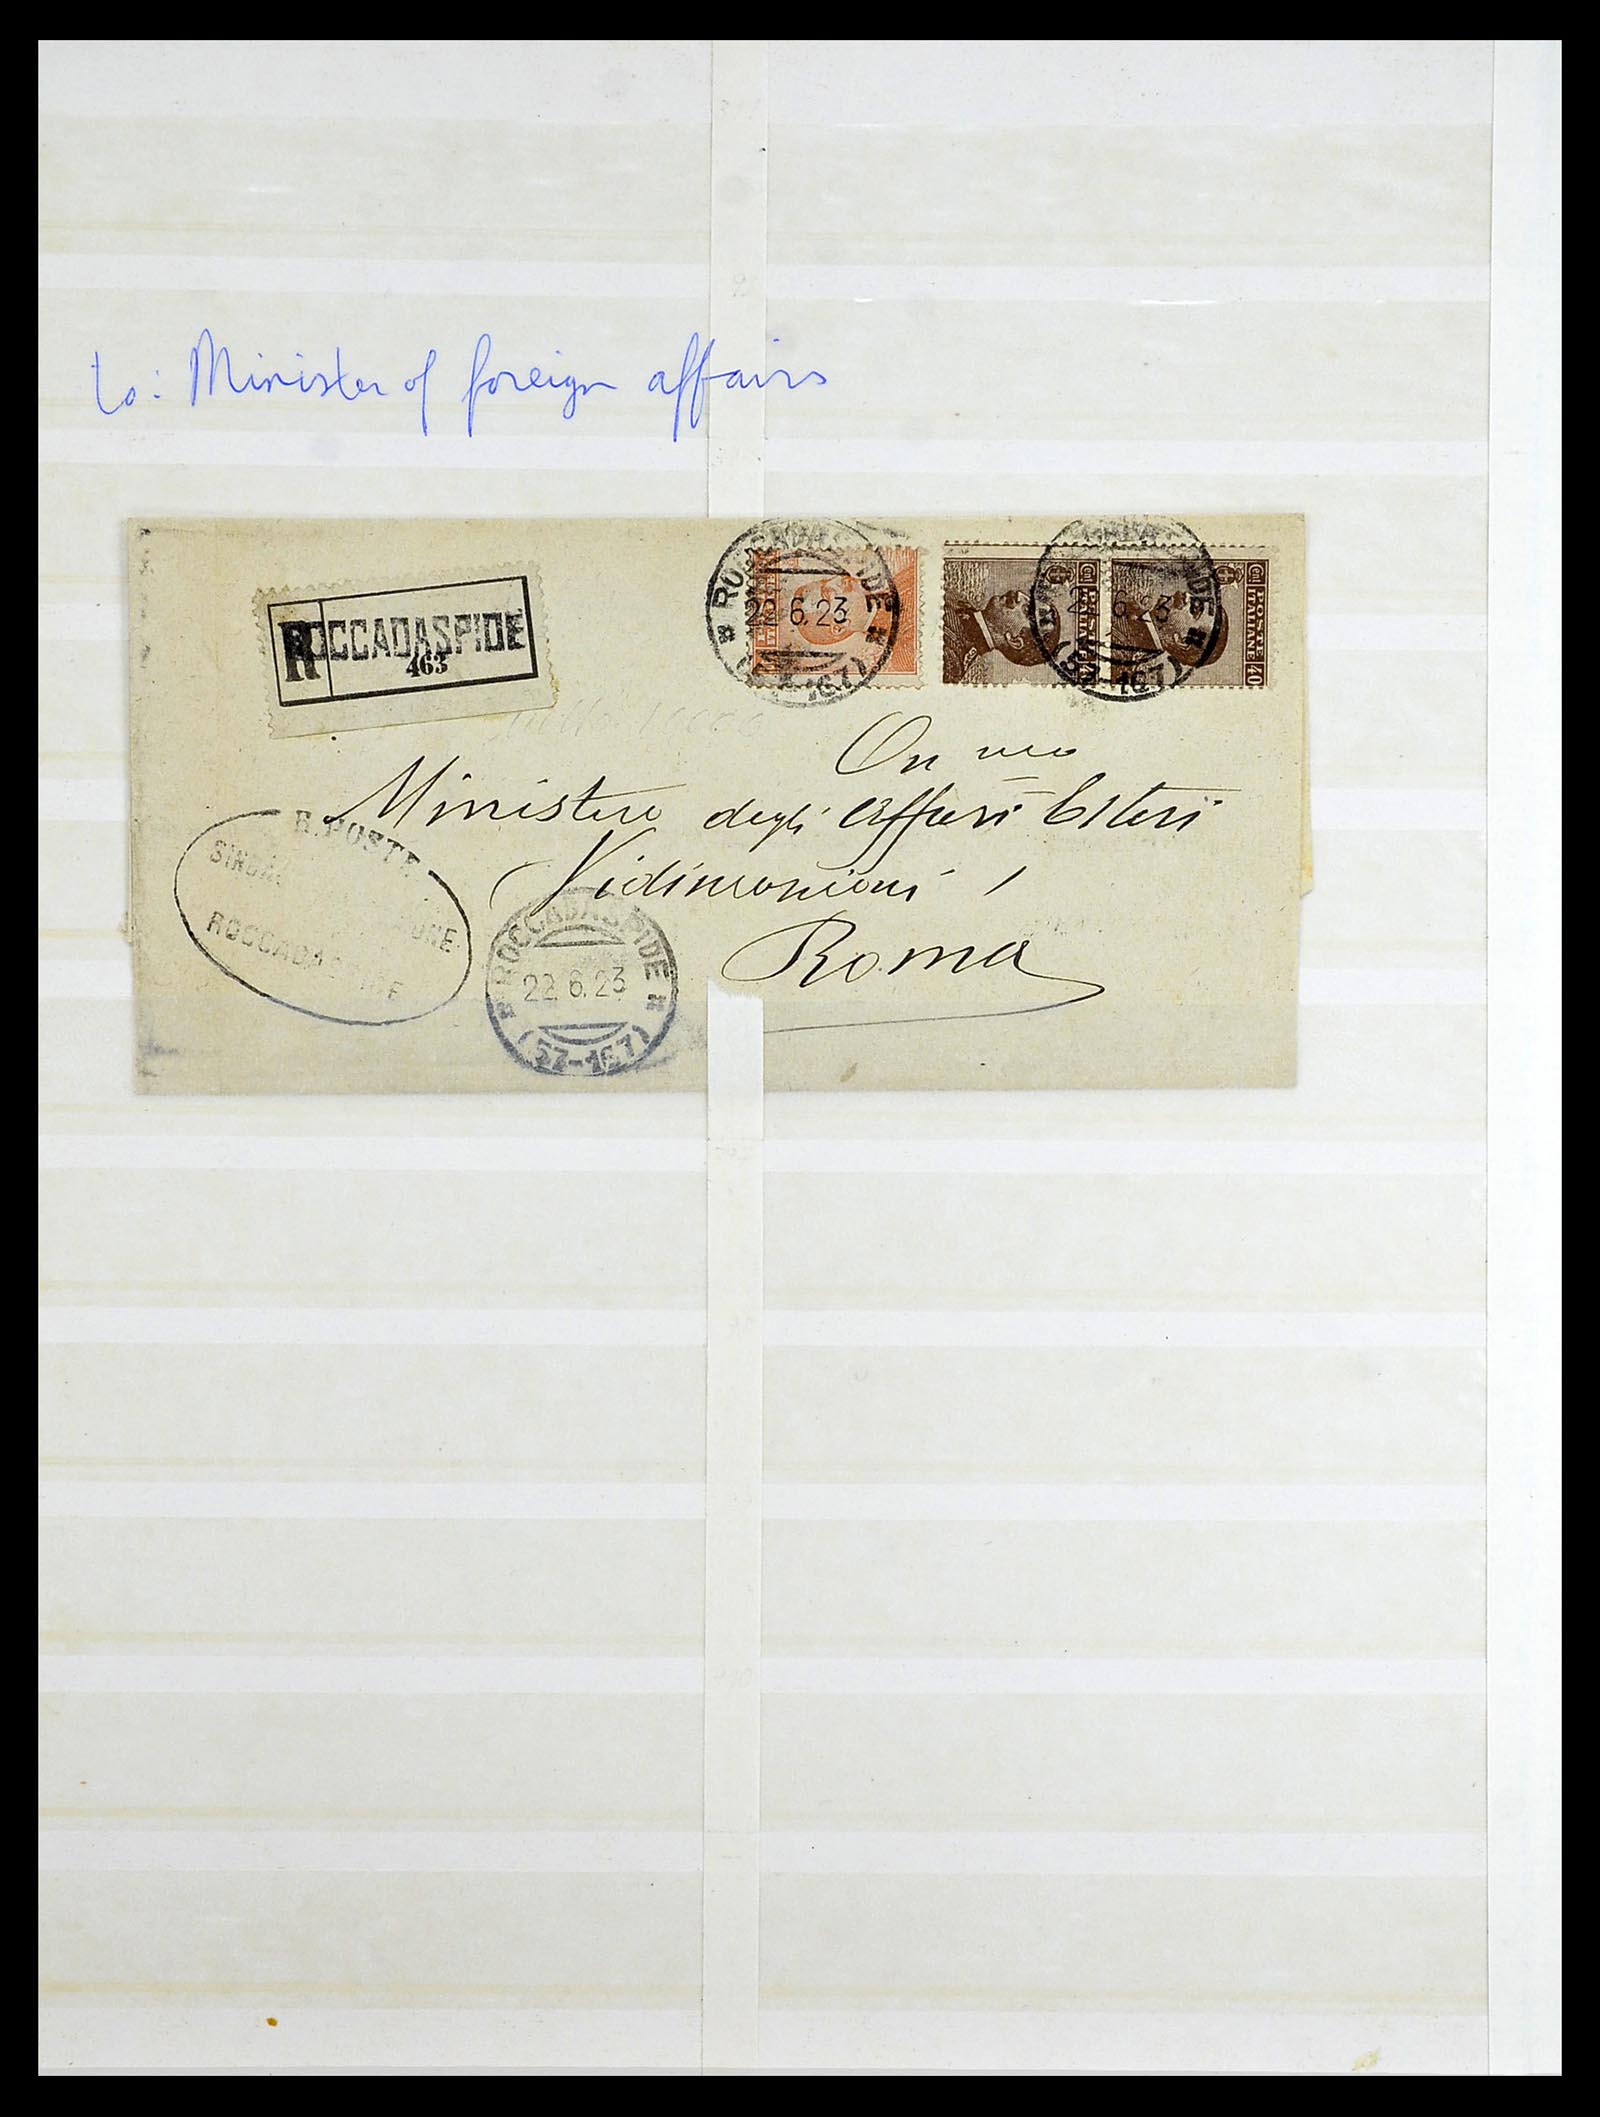 to: Minister of foreign affairs
R ROCCADASPIDE
463
ROCCADASPIDE
22.6.23
(57-167)
ROCCADASPIDE
22.6.23
(57-167)
POSTE ITALIANE
Cent 40
POSTE ITALIANE
Cent 40
On
Ministero degli Affari Esteri
Roma
R. POSTE
ROCCADASPIDE
ROCCADASPIDE
22.6.23
(57-167)